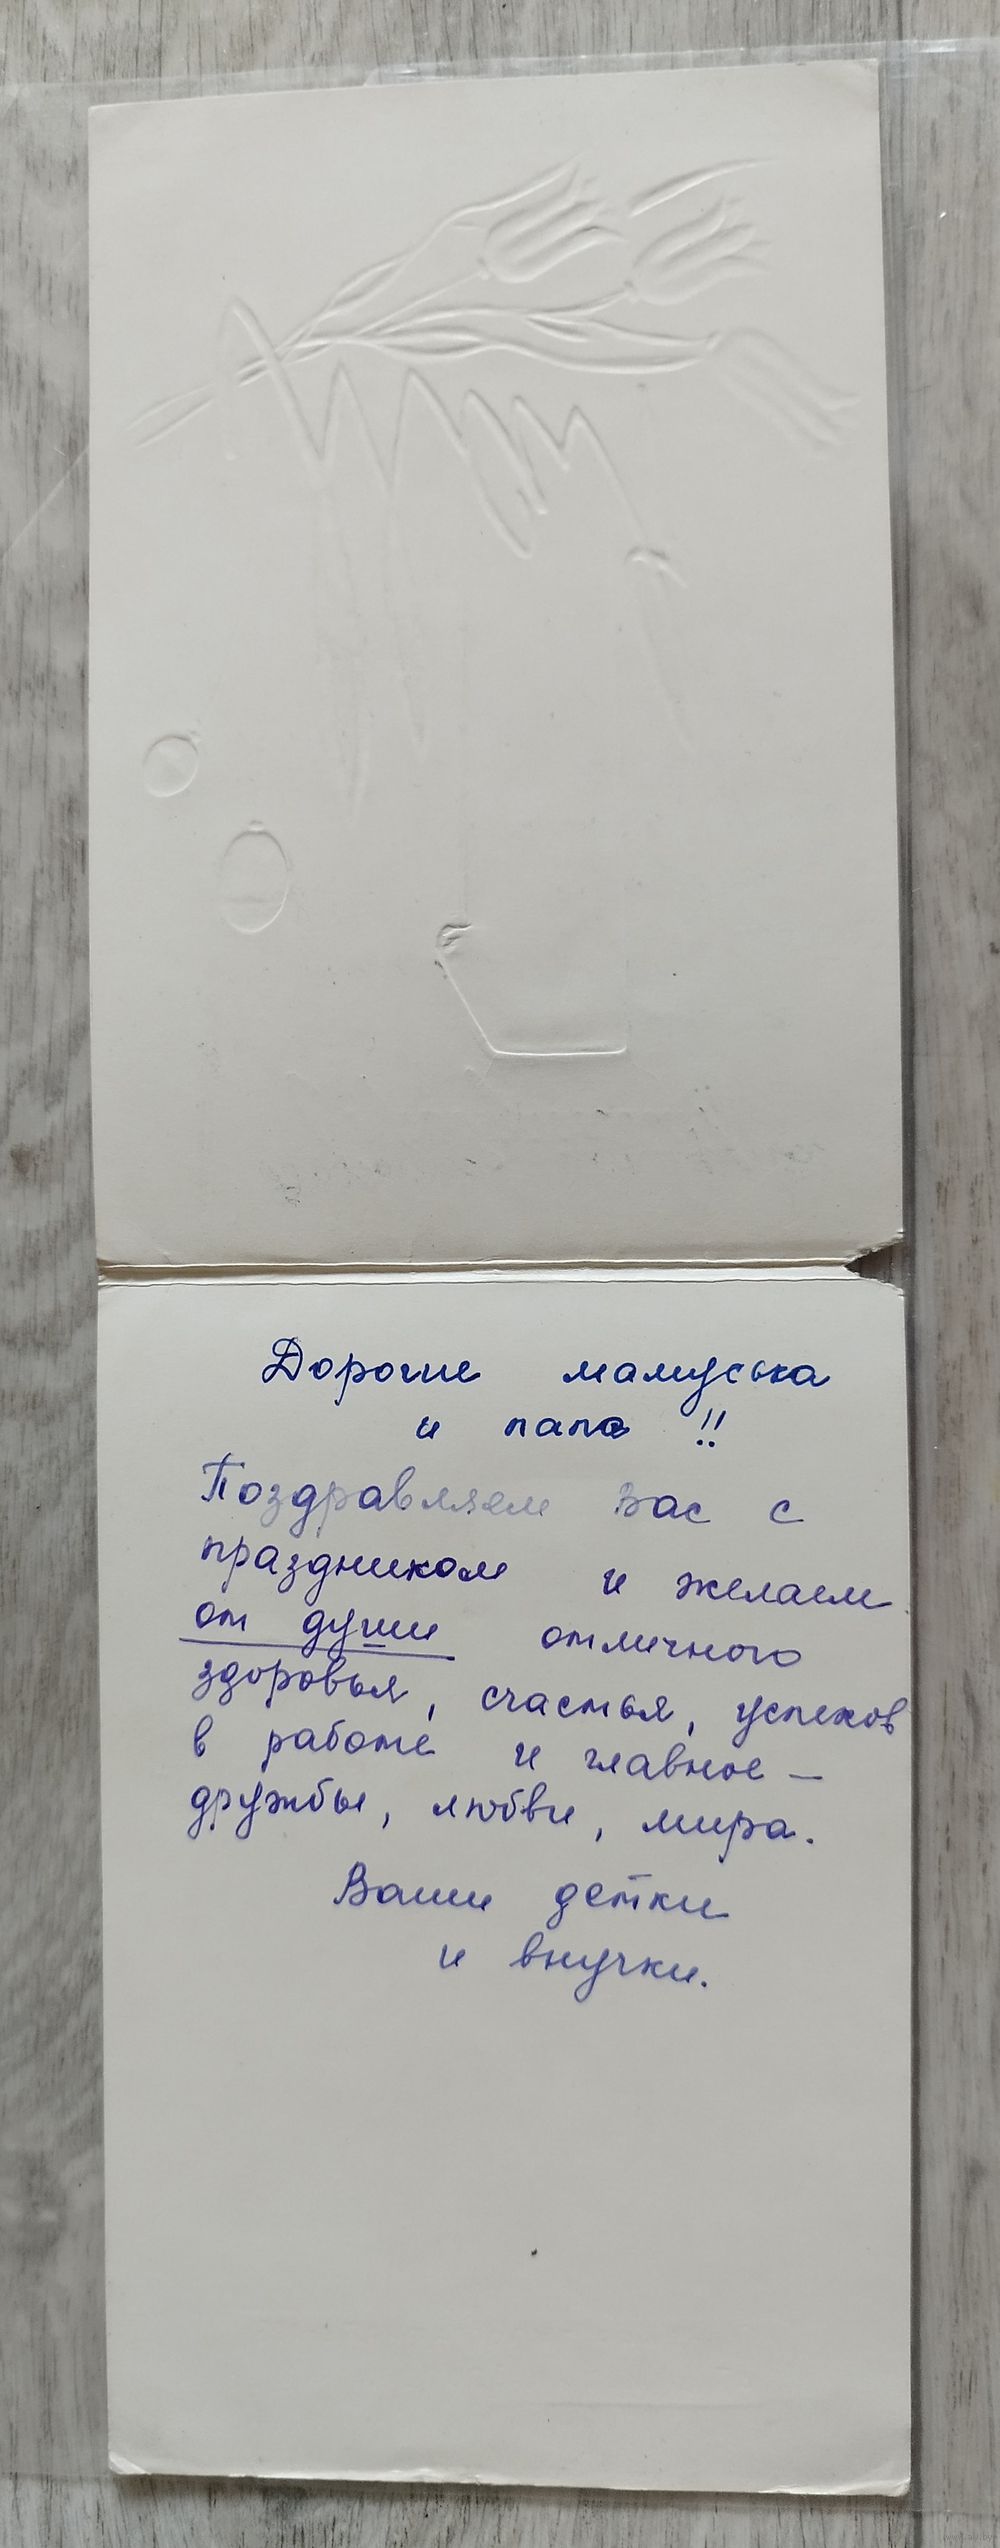 Дорогие мамуська
и папа !!
Поздравляем Вас с
праздником и желаем
от души отличного
здоровья, счастья, успехов
в работе и главное —
дружбы, любви, мира.
Ваши детки
и внучки.